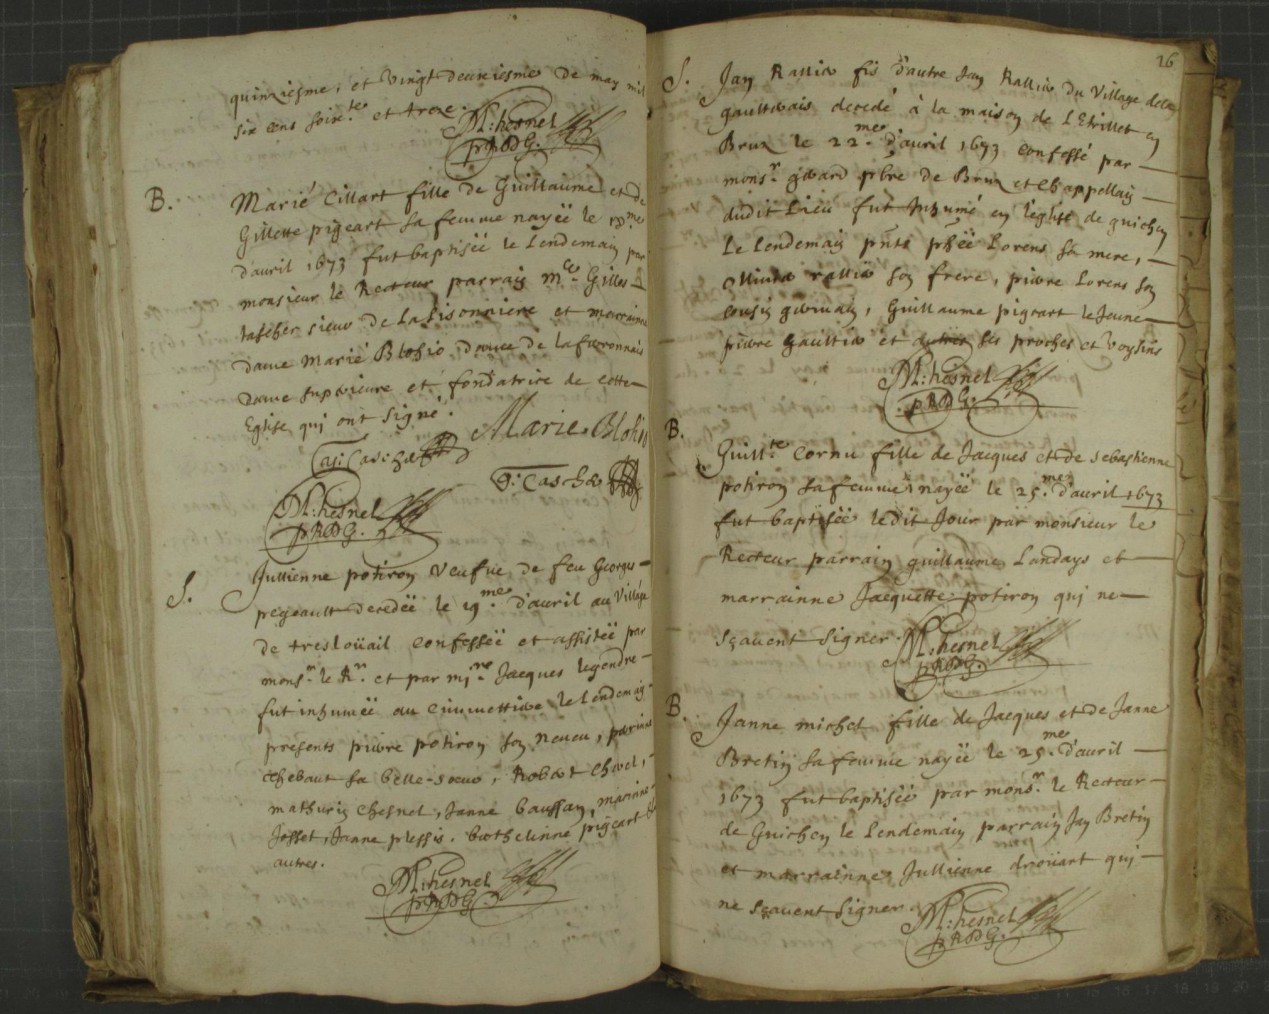 quinziesme, et vingt deuxiesme de may mil
six cens soixte et treze.
M: hesnel
pRDG.
B.
Marie Cillart fille de Guillaume et de
Gillette pigeart sa femme nayëe le
d'avril 1673 fut baptisëe le lendemain par
monsieur le Recteur parrain Gilles
sieur de et marrainne
dame Marie Blohio, dame de
dame superieure et fondatrice de cette
Eglise qui ont signé.
Marie Blohio
M: hesnel
pRDG.
S.
Jullienne potiron veufve de feu Georges
pegeault decedëe le 19.me d'avril au village
de tresloüail confessëe et assistëe par
mons.r le R.r et par Jacques legendre
fut inhumëe au cimmettiere le lendemain
presents pierre potiron son neveu, perrine
chebaut sa belle-soeur, Robert chevel,
mathurin Chesnel, Janne baussan, marine
Josset, Janne plessis, berthelenne pigeart &
autres.
M: hesnel
pRDG.
26
S.
Jan Rallier fis d'autre Jan Rallier du village de la
gaultraie decedé à la maison de L'Etrillet en
Bruz le 22.me d'avril 1673 confessé par
mons.r pbre de Bruz et chappellain
dudit lieu fut Inhumé en l'eglise de guichen
le lendemain pnts Lorens sa mere,
ollivier rallier son frere, pierre Lorens son
cousin germain, Guillaume pigeart le Jeune
pierre Gaultier et autres ses proches et voysins
M: hesnel
pRDG.
B.
Guill.te Cornu fille de Jacques et de sebastienne
potiron sa femme nayëe le 25.me d'avril 1673
fut baptisëe ledit Jour par monsieur le
Recteur parrain guillaume Landays et
marrainne Jacquette potiron qui ne
sçavent signer.
M: hesnel
pRDG
B.
Janne michel fille de Jacques et de Janne
Bretin sa femme nayëe le 25.me d'avril
1673 fut baptisëe par mons.r le Recteur
de Guichen le lendemain parrain Jan Bretin
et marrainne Jullienne droüart qui
ne sçavent signer.
M: hesnel
pRDG.